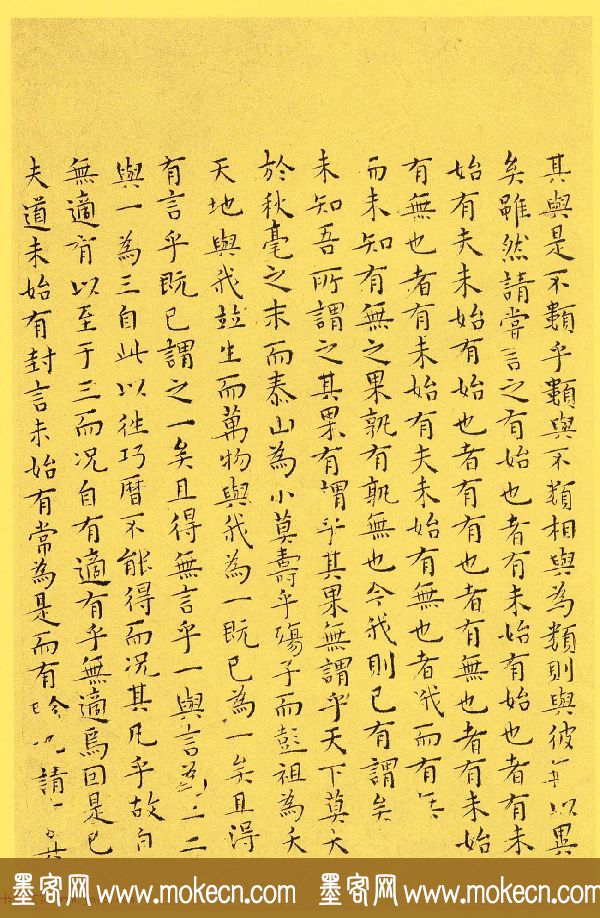 其與是不類乎類與不類相與為類則與彼無以異
矣雖然請嘗言之有始也者有未始有始也者有未
始有夫未始有始也者有有也者有無也者有未始
有無也者有未始有夫未始有無也者我而有無
而未知有無之果孰有孰無也今我則已有謂矣
未知吾所謂之其果有謂乎其果無謂乎天下莫大
於秋毫之末而泰山為小莫壽乎殤子而彭祖為夭
天地與我並生而萬物與我為一既已為一矣且得
有言乎既已謂之一矣且得無言乎一與言為二二
與一為三自此以往巧曆不能得而況其凡乎故自
無適有以至于三而況自有適有乎無適焉因是已
夫道未始有封言未始有常為是而有畛也請言其
墨客网 www.mokecn.com 墨客网 www.mokecn.com